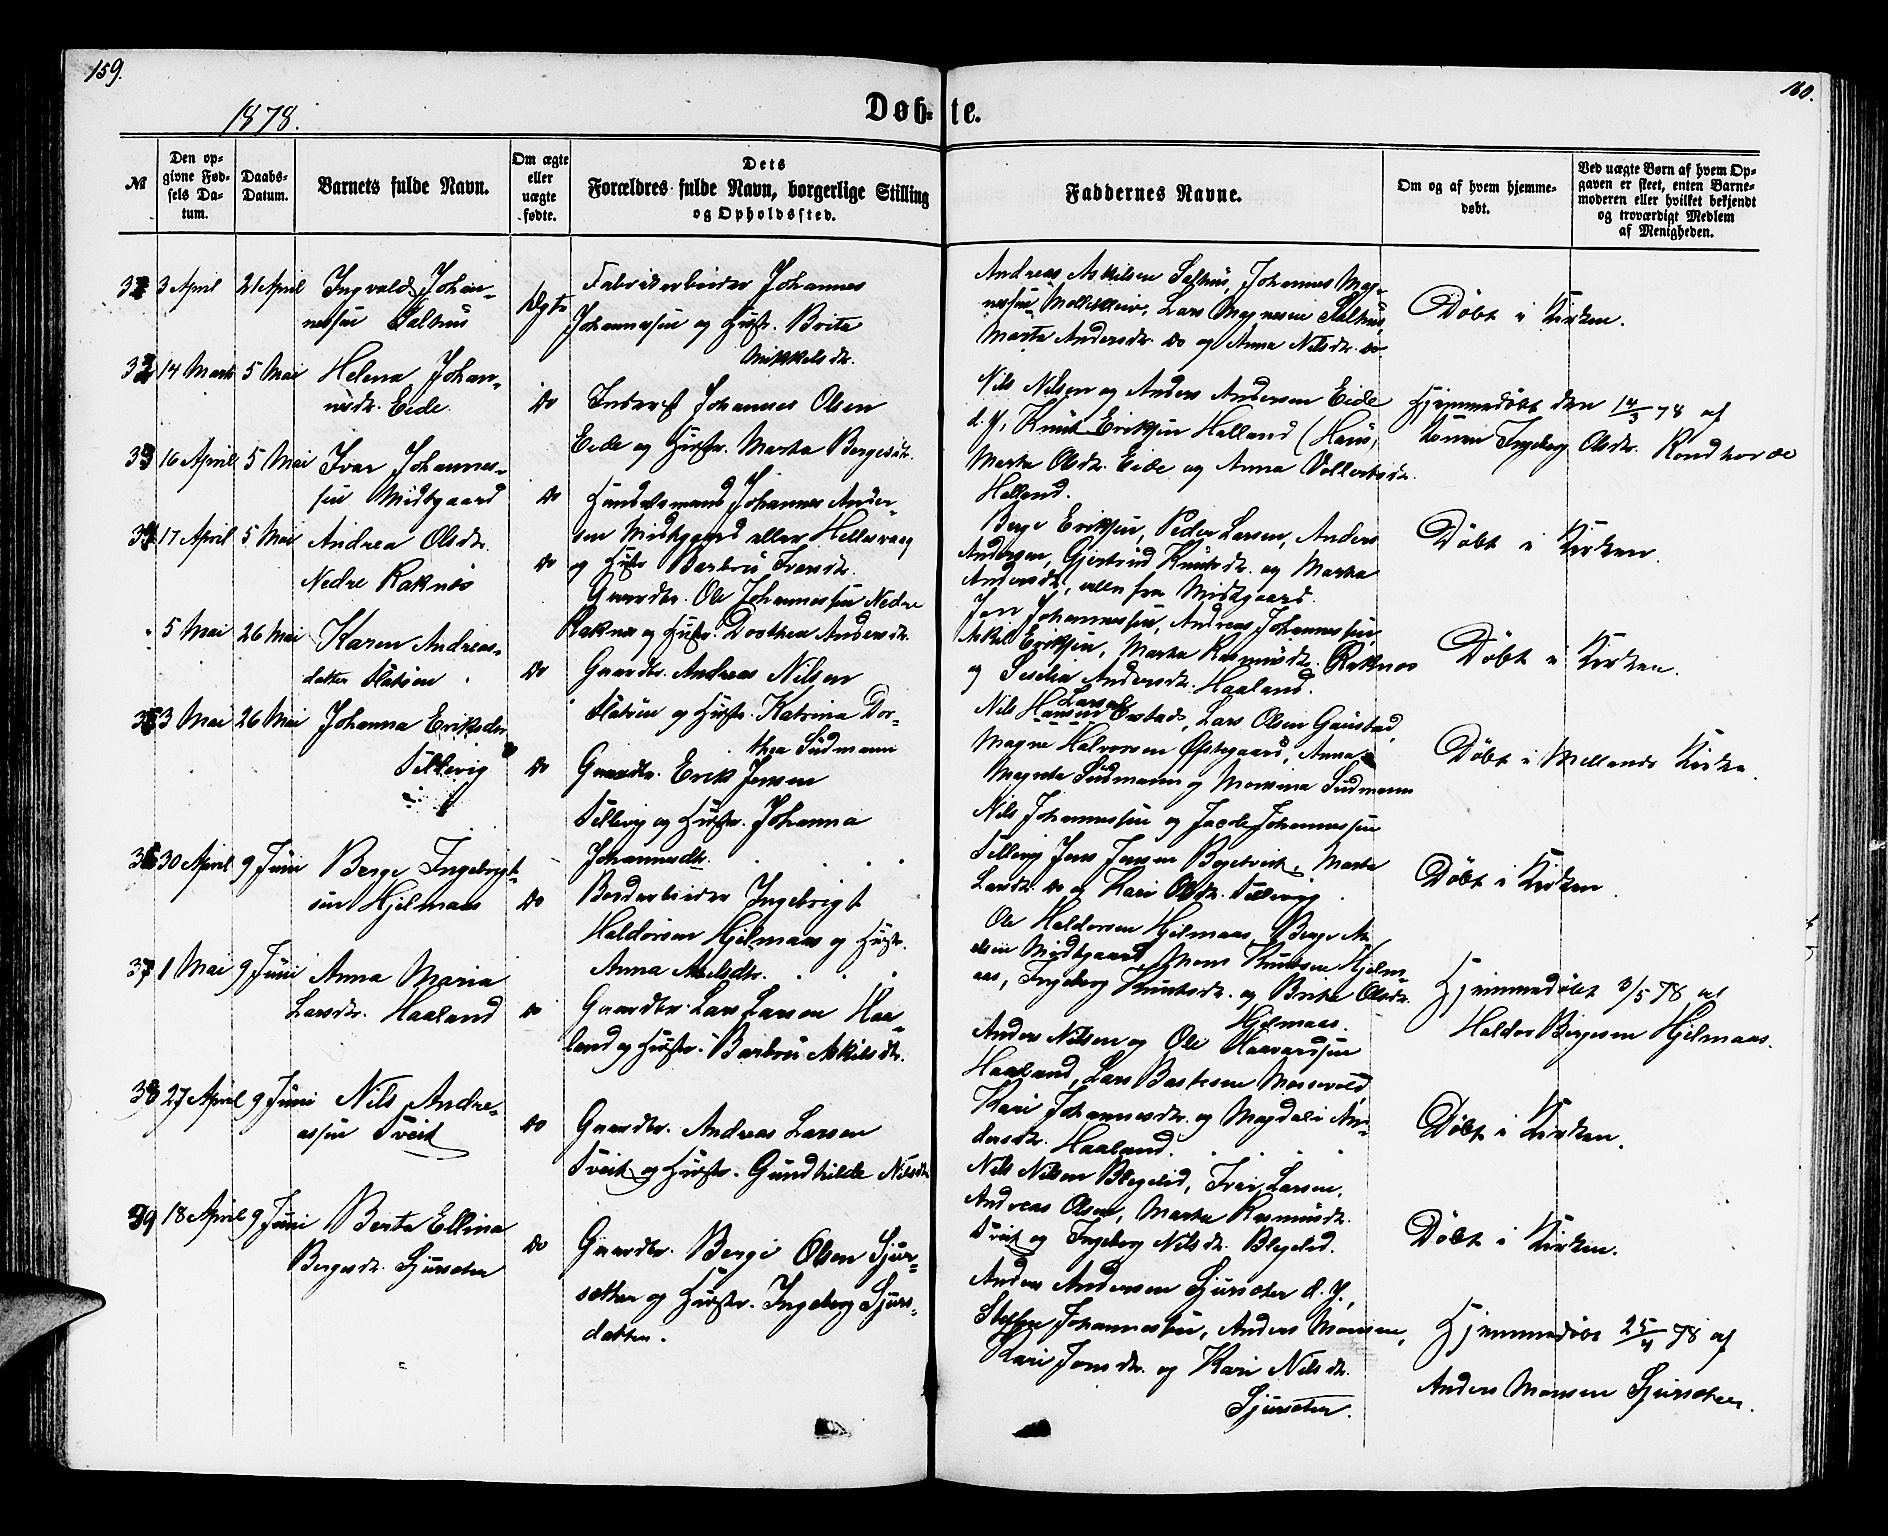 159.
160.
1878.
Døb-te.
№
Den op-
givne Fød-
sels Da-
tum.
Daabs-
Datum.
Barnets fulde Navn.
Om ægte
eller
uægte
fødte.
Dets
Forældres fulde Navn, borgerlige Stilling
og Opholdssted.
Faddernes Navne.
Om og af hvem hjemme-
døbt.
Ved uægte Børn af hvem Op-
gaven er skeet, enten Barne-
moderen eller hvilket bekjendt
og troværdigt Medlem
af Menigheden.
3 April 21 April Ingvald Johan-
nessen Salhus
Ægte
Fabrikarbeider Johannes
Johannessen og Hustr. Brita
Mikkelsdr.
Andreas Askilsen Salhus, Johannes Mag-
nessen, Lars Magnesen Salhus,
Marta Andersdr. Do og Anna Nilsdr. Do
Døbt i Kirken.
32 14 Marts 5 Mai Helena Johan-
nesdr. Eide.
Do
Inderst Johannes Olsen
Eide og Hustr. Marta Bergesdr.
Nils Nilsen og Anders Andersen Eide
d. y., Knut Eriksen Helland (Haus,
Marta Olsdr. Eide og Anna
Helland.
Hjemmedøbt den 14/3 78 af
Konen Ingeborg Olsdr. Rondhovde
33 16 April 5 Mai Ivar Johannes-
sen Midtgaard
Do
Handelsmand Johannes Ander-
sen Midtgaard eller
og Hustr Barbru Iversdr.
Berge Eriksen, Peder Larsen, Anders
Andersen, Gjertrud Knutsdr. og Marta
Andersdr., alle fra Midtgaard.
Døbt i Kirken.
34 17 April 5 Mai Andrea Olsdr.
Nedre Raknes
Do
Gaardbr. Ole Johannessen Nedre
Raknes og Hustr. Dorthea Andersdr.
Jon Johannessen, Andreas Johannessen,
Askil Eriksen, Marta Rasmusdr. Raknes
og Sesilia Andersdr. Haaland.
Døbt i Kirken.
5 Mai 26 Mai Karen Andreas-
datter
Do
Gaardbr. Andreas Nilsen
og Hustr. Katrina Dor-
thea Sudmann
Nils Larsen, Lars Olsen Gaustad,
Magne Halvorsen Øfstegaard, Anna
Sudmann og Sudmann
Døbt i Mellands Kirke.
3 Mai 26 Mai Johanna Eriksdr
Tellevig
Do
Gaardbr. Erik Jensen
Tellevig og Hustr. Johanna
Johannesdr.
Nils Johannessen og Jacob Johannessen
Tellevig Jens Jensen, Marta
Larsdr. Do og Kari Olsdr. Tellevig.
Døbt i Kirken.
30 April 9 Juni Berge Ingebrigt-
sen Hjelmaas
Do
Bordarbeider Ingebrigt
Haldorsen Hjelmaas og Hustr.
Anna
Ole Haldorsen Hjelmaas, Berge
Midtgaard, Mons Knutsen Hjelm-
aas, Ingeborg Knutsdr. og Brita Olsdr.
Hjelmaas.
Hjemmedøbt 3/5 78 af
Haldor Bergesen Hjelmaas.
37 1 Mai 9 Juni Anna Maria
Larsdr. Haaland
Do
Gaardbr. Lars Larsen Haa-
land og Hustr. Barbru Askilsdr.
Anders Nilsen og Ole Haavardsen
Haaland, Lars Bastesen,
Kari Johannesdr. og Magdeli An-
dersdr. Haaland.
Døbt i Kirken.
38 27 April 9 Juni Nils Andre-
assen Tveit
Do
Gaardbr. Andreas Larsen
Tveit og Hustr. Gundhilde Nilsdr
Nils Nilsen, Iver Larsen,
Andreas Olsen, Marta Rasmusdr.
Tveit og Ingeborg Nilsdr.
Døbt i Kirken.
39 18 April 9 Juni Berta Ellina
Bergesdr. Sjursæter
Do
Gaardbr. Berge Olsen Sjur-
sæter og Hustr. Ingeborg Sjurs-
datter.
Anders Andersen Sjursæter d. y.,
Steffen Johannessen, Anders Monsen,
Kari Jonsdr. og Kari Nilsdr.
Sjursæter.
Hjemmedøbt 25/4 78 af
Anders Monsen Sjursæter.